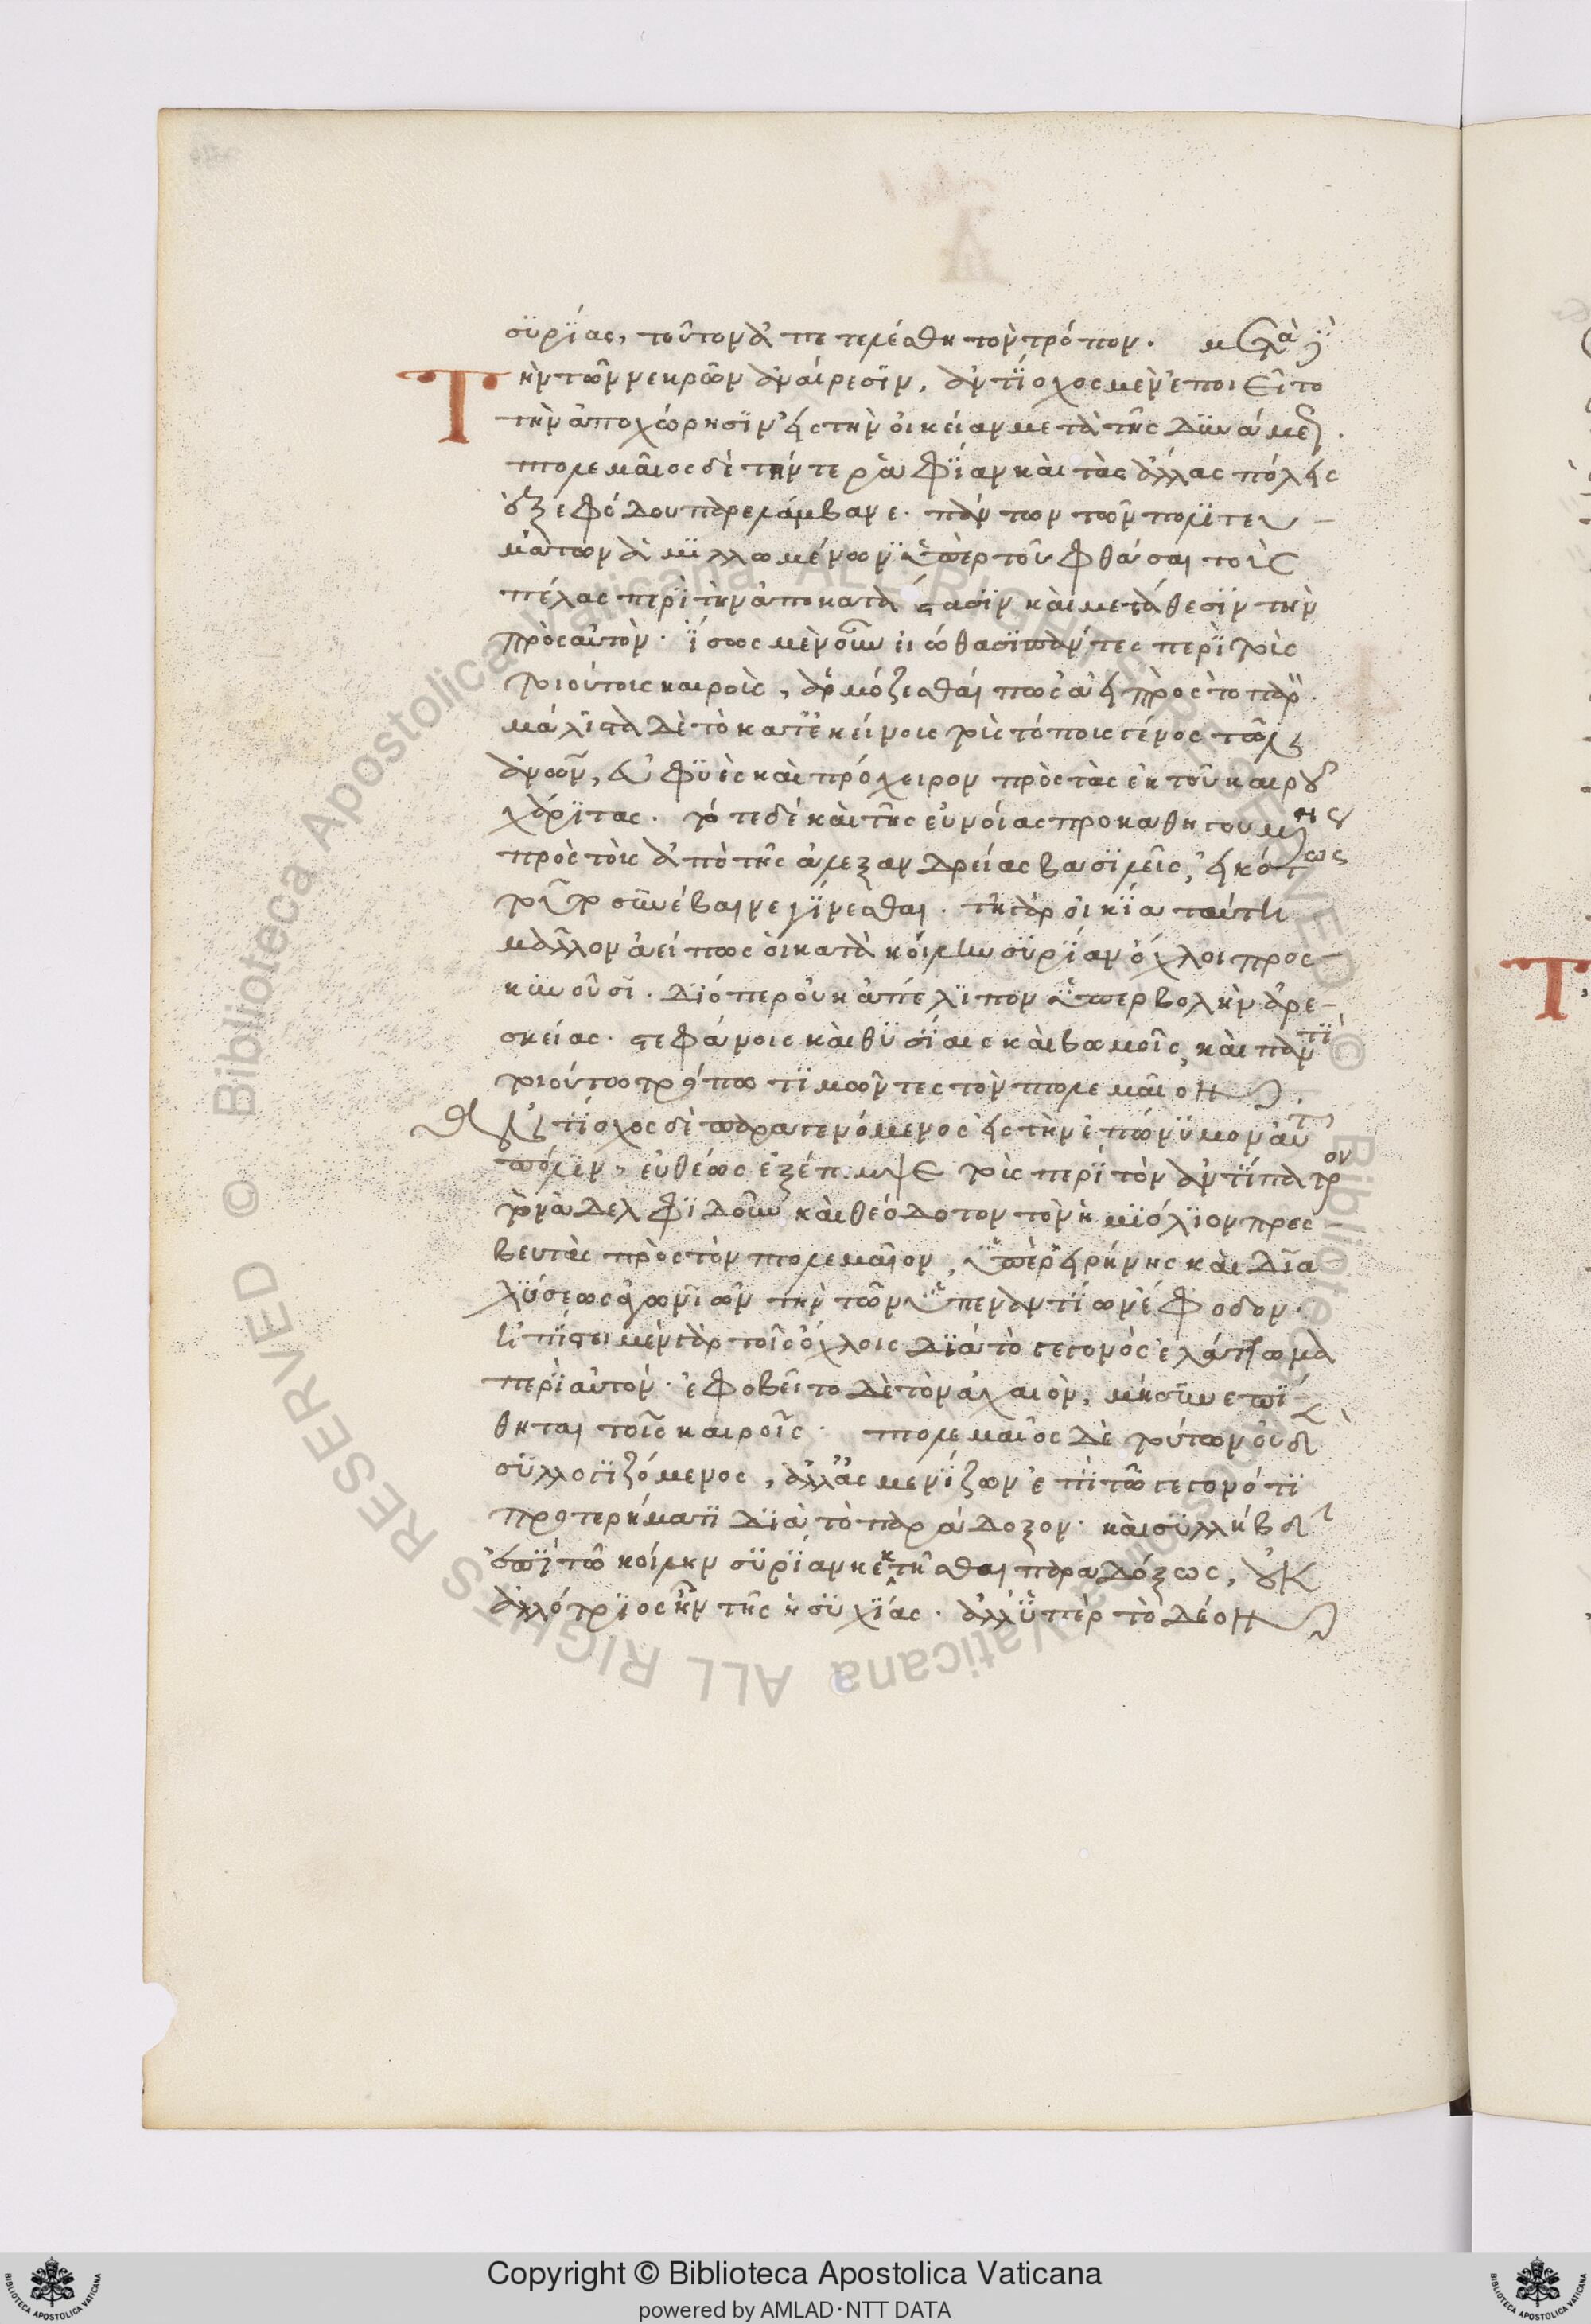 συρίας, τοῦτον ἀπετελέσθη τὸν τρόπον. μετὰ δὲ
τὴν τῶν νεκρῶν ἀναίρεσιν, ἀντίοχος μὲν ἐποιεῖτο
τὴν ἀποχώρησιν εἰς τὴν οἰκείαν μετὰ τῆς δυνάμεως.
πτολεμαῖος δὲ τήν τε ῥαφίαν καὶ τὰς ἄλλας πόλεις
ἐξ ἐφόδου παρελάμβανε. πάντων τῶν πολιτευ-
μάτων ἁμιλλωμένων ὑπὲρ τοῦ φθάσαι τοὺς
πέλας περὶ τὴν ἀποκατάστασιν καὶ μετάθεσιν τὴν
πρὸς αὐτόν. ἴσως μὲν οὖν εἰώθασι πάντες περὶ τοὺς
τοιούτους καιροὺς, ἁρμόζεσθαί πως ἀεὶ πρὸς τὸ παρόν.
μάλιστα δὲ τὸ κατ' ἐκείνους τοὺς τόπους γένος τῶν
ἀν̅ων̅, εὐφυὲς καὶ πρόχειρον πρὸς τὰς ἐκ τοῦ καιροῦ
χάριτας. τότε δὲ καὶ τῆς εὐνοίας προκαθηγουμένης
πρὸς τοὺς ἀπὸ τῆς ἀλεξανδρείας βασιλεῖς, εἰκότως
τοῦτο συνέβαινε γίνεσθαι. τῇ γὰρ οἰκίᾳ ταύτῃ
μᾶλλον ἀεί πως οἱ κατὰ κοίλην συρίαν ὄχλοι προσ-
κυνοῦσι. διόπερ οὐκ ἀπέλιπον ὑπερβολὴν ἀρε-
σκείας. στεφάνοις καὶ θυσίαις καὶ βωμοῖς, καὶ παντὶ
τοιούτῳ τρόπῳ τιμῶντες τὸν πτολεμαῖον.
Ἀντίοχος δὲ παραγενόμενος εἰς τὴν ἐπώνυμον αὑτοῦ
πόλιν, εὐθέως ἐξέπεμψε τοὺς περὶ τὸν ἀντίπατρον
τὸν ἀδελφιδοῦν καὶ θεόδοτον τὸν ἡμιόλιον πρεσ-
βευτὰς πρὸς τὸν πτολεμαῖον, ὑπὲρ εἰρήνης καὶ δια
λύσεως ἀγωνιῶν τὴν τῶν ὑπεναντίων ἔφοδον.
ἠπίστει μὲν γὰρ τοῖς ὄχλοις διὰ τὸ γεγονὸς ἐλάττωμα
περὶ αὐτόν. ἐφοβεῖτο δὲ τὸν ἀχαιὸν, μὴ συνεπί-
θηται τοῖς καιροῖς. πτολεμαῖος δὲ τούτων οὐδὲν
συλλογιζόμενος, ἀλλ' ἀσμενίζων ἐπὶ τῷ γεγονότι
προτερήματι διὰ τὸ παράδοξον. καὶ συλλήβδην
ἐπὶ τῷ κοίλην συρίαν κεκτῆσθαι παραδόξως, οὐκ
ἀλλότριος ἦν τῆς ἡσυχίας. ἀλλ' ὑπὲρ τὸ δέον
Copyright © Biblioteca Apostolica Vaticana
powered by AMLAD·NTT DATA